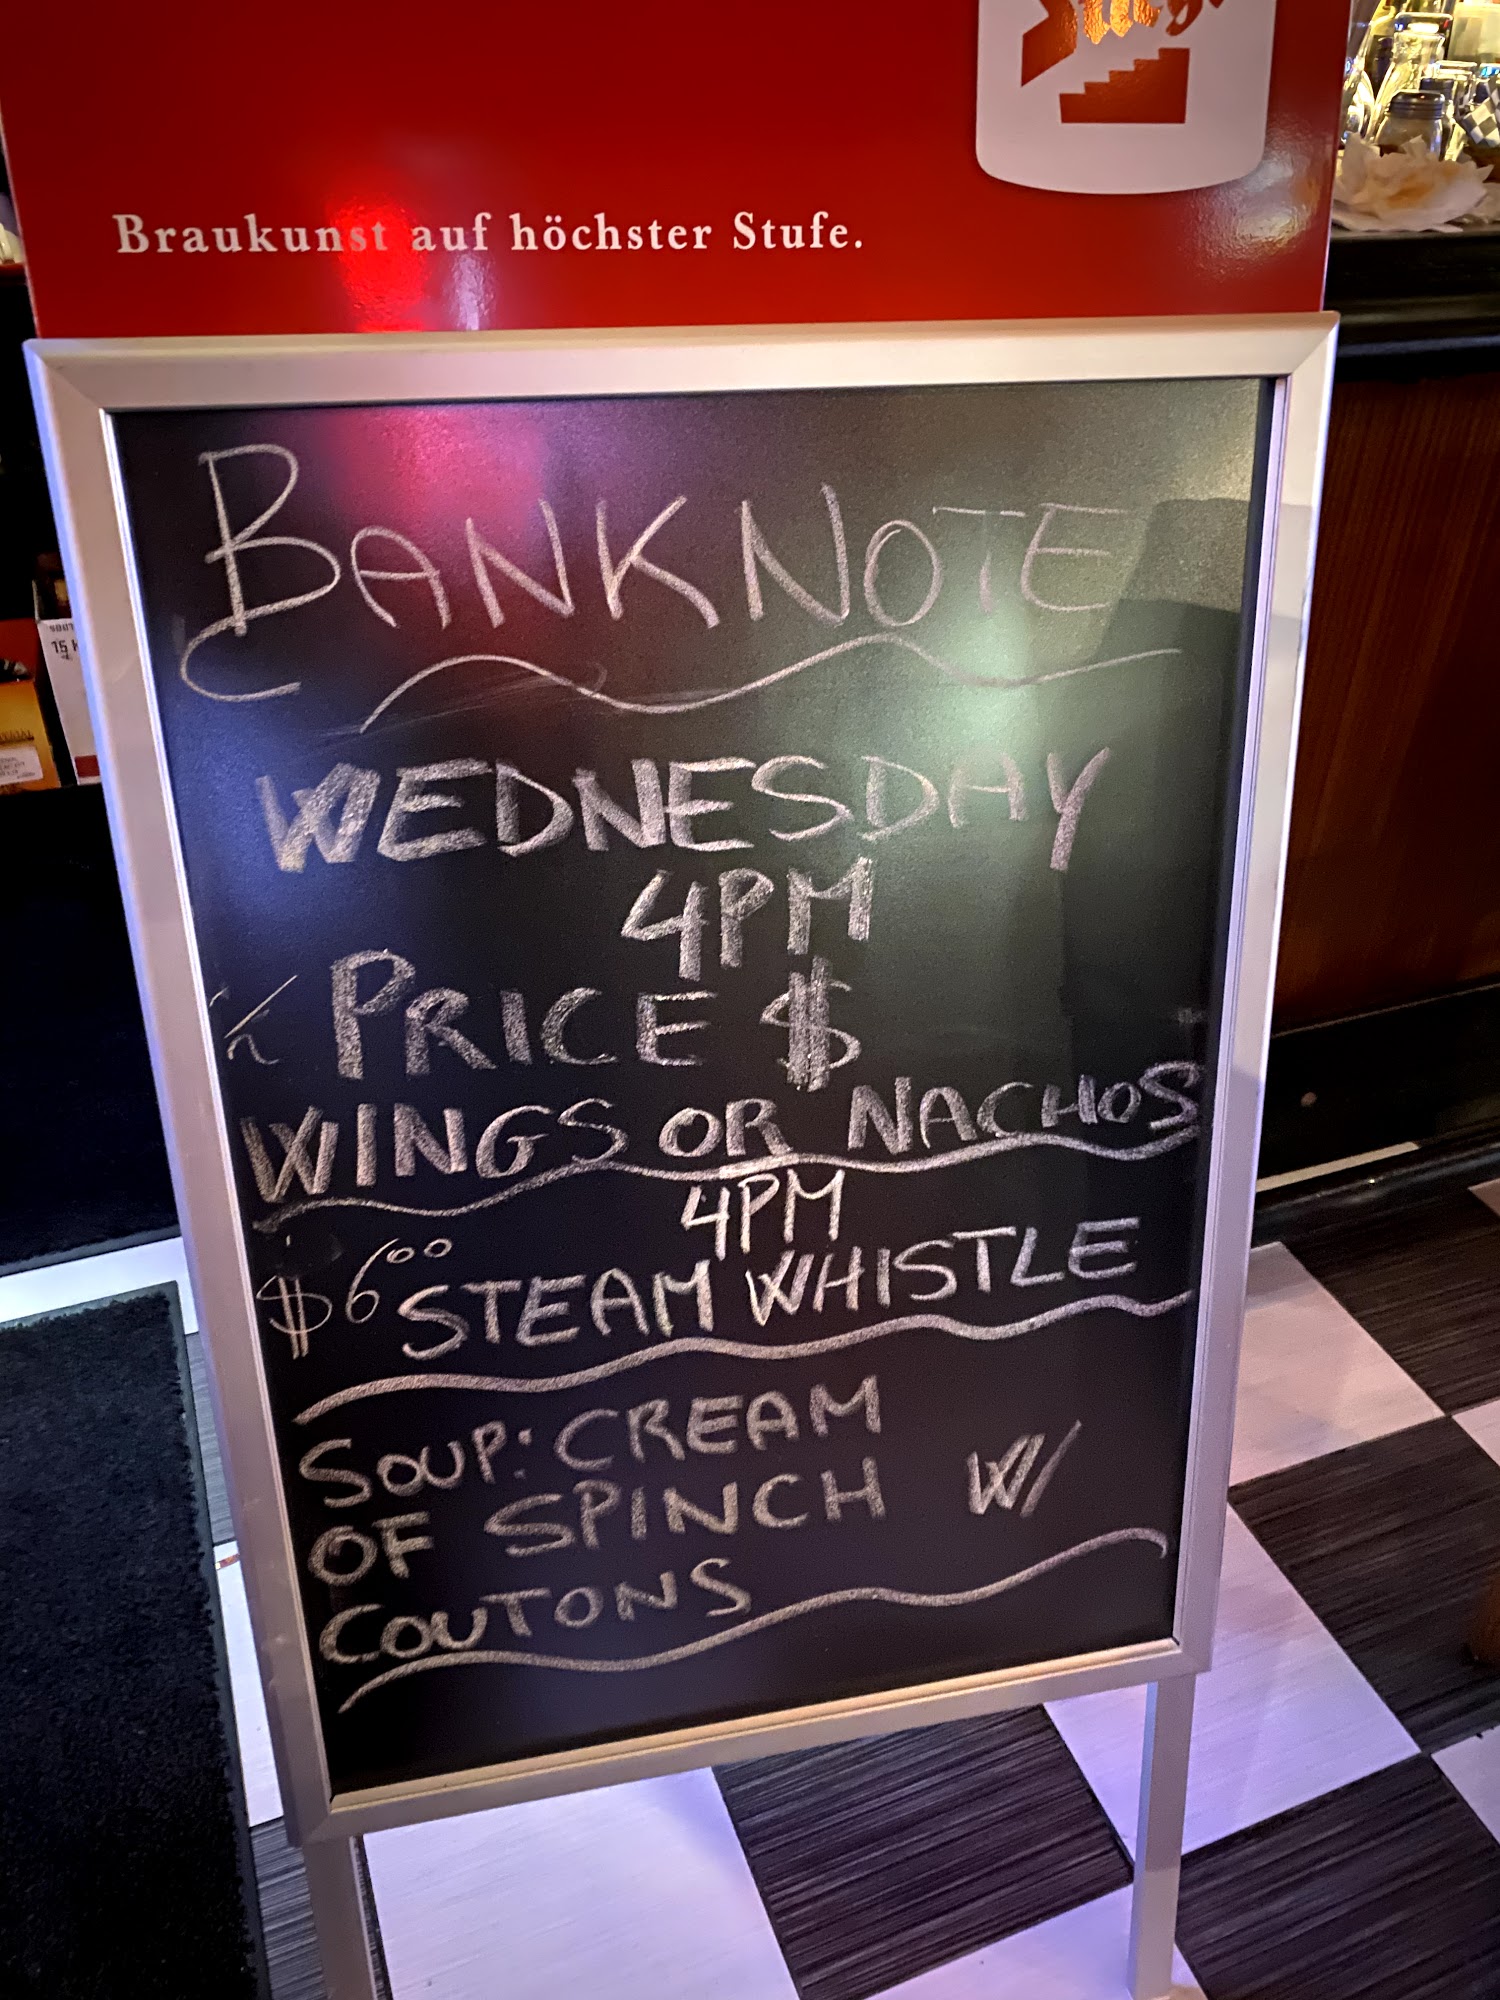 Braukunst auf höchster Stufe.
BANKNOTE
WEDNESDAY
4PM
½ PRICE $
WINGS OR NACHOS
4PM
$6⁰⁰ STEAM WHISTLE
SOUP: CREAM
OF SPINCH W/
COUTONS